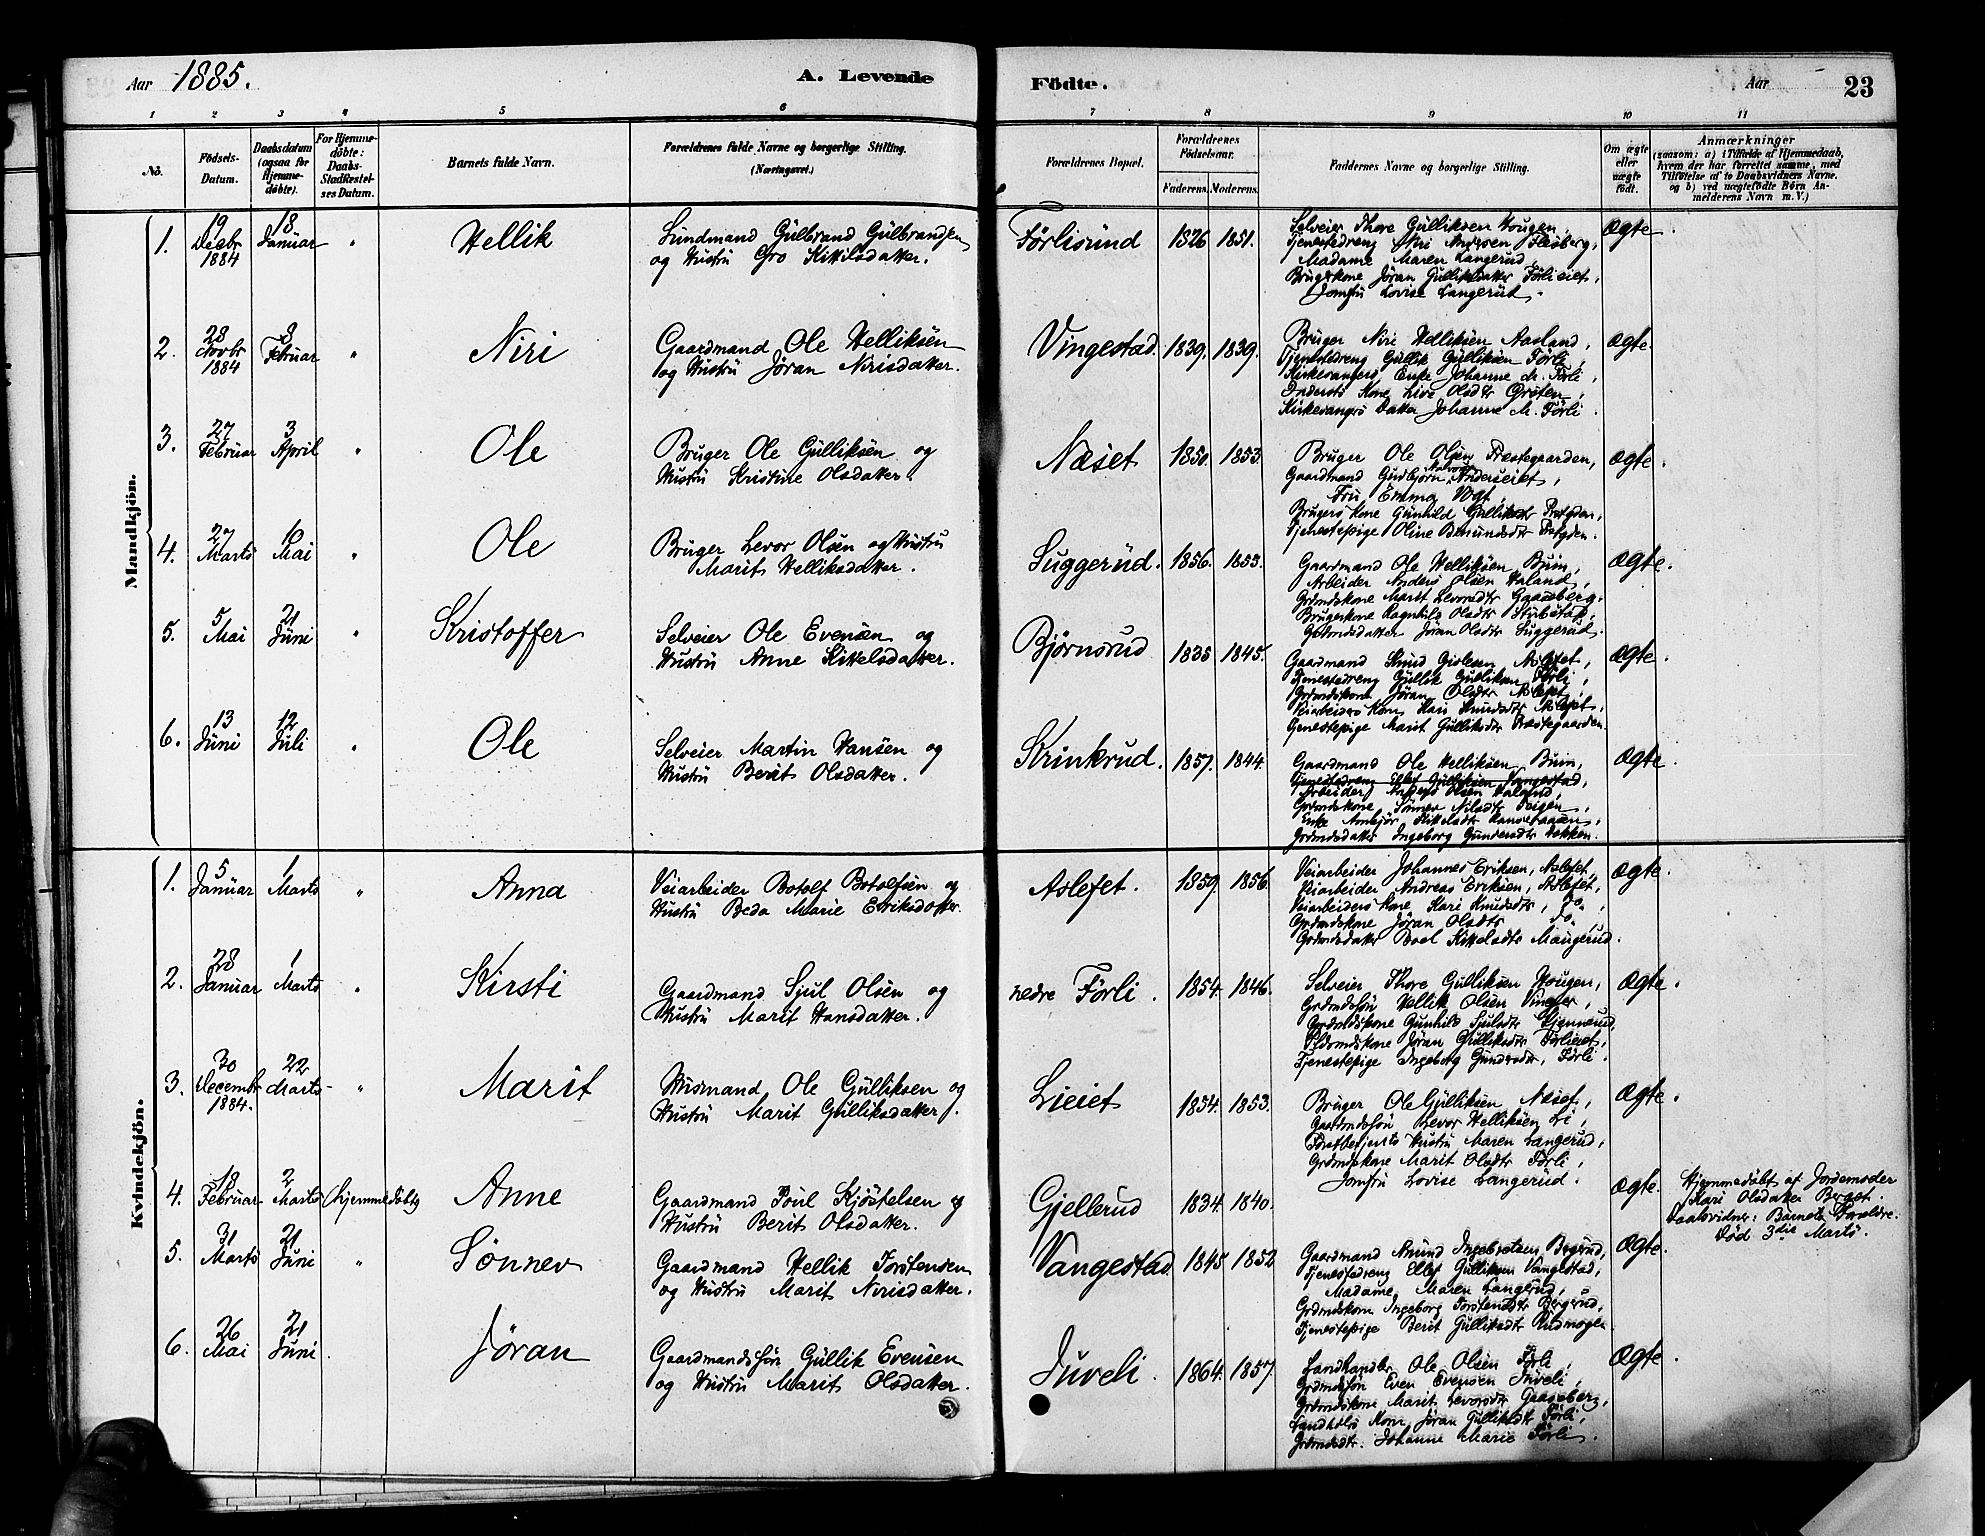 Aar 1885.
A. Levende
Födte.
Aar
23
1 2 3 4 5 6 7 8 9 10 11
No.
Födsels-Datum.
Daabsdatum (ogsaa for Hjemmedöbte).
For Hjemmedöbte: Daabs-Stadfæstelses Datum.
Barnets fulde Navn.
Forældrenes fulde Navne og borgerlige Stilling. (Næringsvei.)
Forældrenes Bopæl.
Forældrenes Födselsaar.
Faderens. Moderens.
Faddernes Navne og borgerlige Stilling.
Om ægte eller uægte födt.
Anmærkninger
(saasom: a) i Tilfælde af Hjemmedaab, hvem der har forrettet samme, med Tilföielse af to Daabsvidners Navne, og b) ved uægtefödte Börn Anmelderens Navn m. V.)
Mandkjön.
1. 19 Decbr 1884 18 Januar " Hellik
Lundmand Gulbrand Gulbrandsen
og Hustru Gro Kittilsdatter.
Førlisund 1826 1851.
Selveier Thore Gulliksen Hougen,
Tjenestedreng Niri Andersen Flesberg,
Madame Maren Langerud,
Brugerkone Jøran Gulliksdatter Førlieiet,
Jomfru Lovise Langerud.
Ægte.
2. 28 Novbr 1884 8 Februar " Niri
Gaardmand Ole Helliksen
og Hustru Jøran Nirisdatter.
Vingestad. 1839. 1839.
Bruger Niri Helliksen Aasland,
Tjenestedreng Gullik Gulliksen Førli,
Kirkesangers Enke Johanne M. Førli,
Indersts Kone Live Olsdtr Grøten,
Kirkesangrs Datter Johanne M. Førli.
Ægte.
3. 27 Februar 3 April " Ole
Bruger Ole Gulliksen og
Hustru Kristine Olsdatter.
Næset 1850. 1853.
Bruger Ole Olsen Præstegaarden,
Gaardmand Gudbjørn Anderseiet,
Fru Emma Vogt,
Brugers Kone Gunhild Gulliksdtr Prstgden,
Tjenestepige Oline Bemundsdtr Prstgden.
Ægte.
4. 27 Marts 16 Mai " Ole
Bruger Levor Olsen og Hustru
Marit Helliksdatter.
Suggerud. 1856. 1853.
Gaardmand Ole Helliksen Buin,
Arbeider Anders Olsen Haland,
Grdmdskone Marit Levorsdtr Gaaseberg,
Brugerkone Ragnhild Olsdtr Stubstak,
Grdmdsdatter Jøran Olsdtr Suggerud.
Ægte.
5. 5 Mai 21 Juni " Kristoffer
Selveier Ole Evensen og
Hustru Anne Kittelsdatter.
Bjørnsrud 1835 1845.
Gaardmand Knud Gislesen Aslefet,
Tjenestedreng Gullik Gulliksen Førli,
Grdmdskone Jøran Olsdtr Aslefet,
Veiarbeiders Kone Kari Knudsdtr Aslefet,
Tjenestepige Marit Gulliksdtr Præstegaarden.
Ægte.
6. 13 Juni 12 Juli " Ole
Selveier Martin Hansen og
Hustru Berit Olsdatter.
Krinkrud. 1857. 1844
Gaardmand Ole Helliksen Buin,
Tjenestedreng Ellef Gulliksen Vangestad,
Arbeider Anders Olsen Haland,
Grdmdskone Sønnev Nilsdtr Teigen,
Enke Annbjør Kittelsdtr
Grdmdsdatter Ingeborg Gundersdtr Bakken.
Ægte.
Kvindekjön.
1. 5 Januar 1 Marts " Anna
Veiarbeider Botolf Botolfsen og
Hustru Beda Marie Eriksdatter.
Aslefet. 1859. 1856.
Veiarbeider Johannes Eriksen, Aslefet,
Veiarbeider Andreas Eriksen, Aslefet,
Veiarbeiders Kone Kari Knudsdtr, Do.,
Grdmdskone Jøran Olsdtr Do.,
Grdmdsdatter Boel Kittelsdtr Maugerud.
Ægte.
2. 28 Januar 1 Marts " Kirsti
Gaardmand Sjul Olsen og
Hustru Marit Hansdatter.
nedre Førli. 1854. 1846.
Selveier Thore Gulliksen Hougen,
Grdmdssøn Hellik Olsen Vinger,
Grdmdskone Gunhild Sjulsdtr Gjennerud,
Huusmdskone Jøran Gulliksdtr Førlieiet,
Tjenestepige Ingeborg Gundersdtr, Førli.
Ægte.
3. 30 Decembr 1884. 22 Marts " Marit
Husmand Ole Gulliksen og
Hustru Marit Gulliksdatter.
Lieiet 1854. 1853.
Bruger Ole Gulliksen Næset,
Gaardmdssøn Levor Helliksen Li,
Forstbetjents Hustru Maren Langerud,
Grdmdskone Marit Olsdtr Førli,
Jomfru Lovise Langerud.
Ægte.
4. 18 Februar 2 Marts (Hjemmedøbt) Anne
Gaardmand Poul Kjøstelsen og
Hustru Berit Olsdatter.
Gjellerud 1834. 1840.
Ægte.
Hjemmedøbt af Jordemoder
Kari Olsdatter Berget.
Daabsvidner: Barnets Forældre.
Død 3die Marts.
5. 31 Marts 21 Juni " Sønnev
Gaardmand Hellik Torstensen
og Hustru Marit Nirisdatter.
Vangestad 1845 1852
Gaardmand Amund Ingebretsen Bergerud,
Tjenestedreng Ellef Gulliksen Vangestad,
Madame Maren Langerud,
Grdmdskone Ingeborg Torstensdtr Bergerud,
Tjenestepige Berit Gulliksdtr Rudmogen.
Ægte.
6. 26 Mai 21 Juni. Jøran
Gaardmandssøn Gullik Evensen
og Hustru Marit Olsdatter.
Juveli. 1864. 1857.
Landhandler Ole Olsen Førli,
Grdmdssøn Even Evensen Juveli,
Grdmdskone Marit Levorsdtr Gaaseberg,
Landhdlrs Kone Jøran Gulliksdtr Førli,
Grdmdsdtr. Johanne Marie Førli.
Ægte.